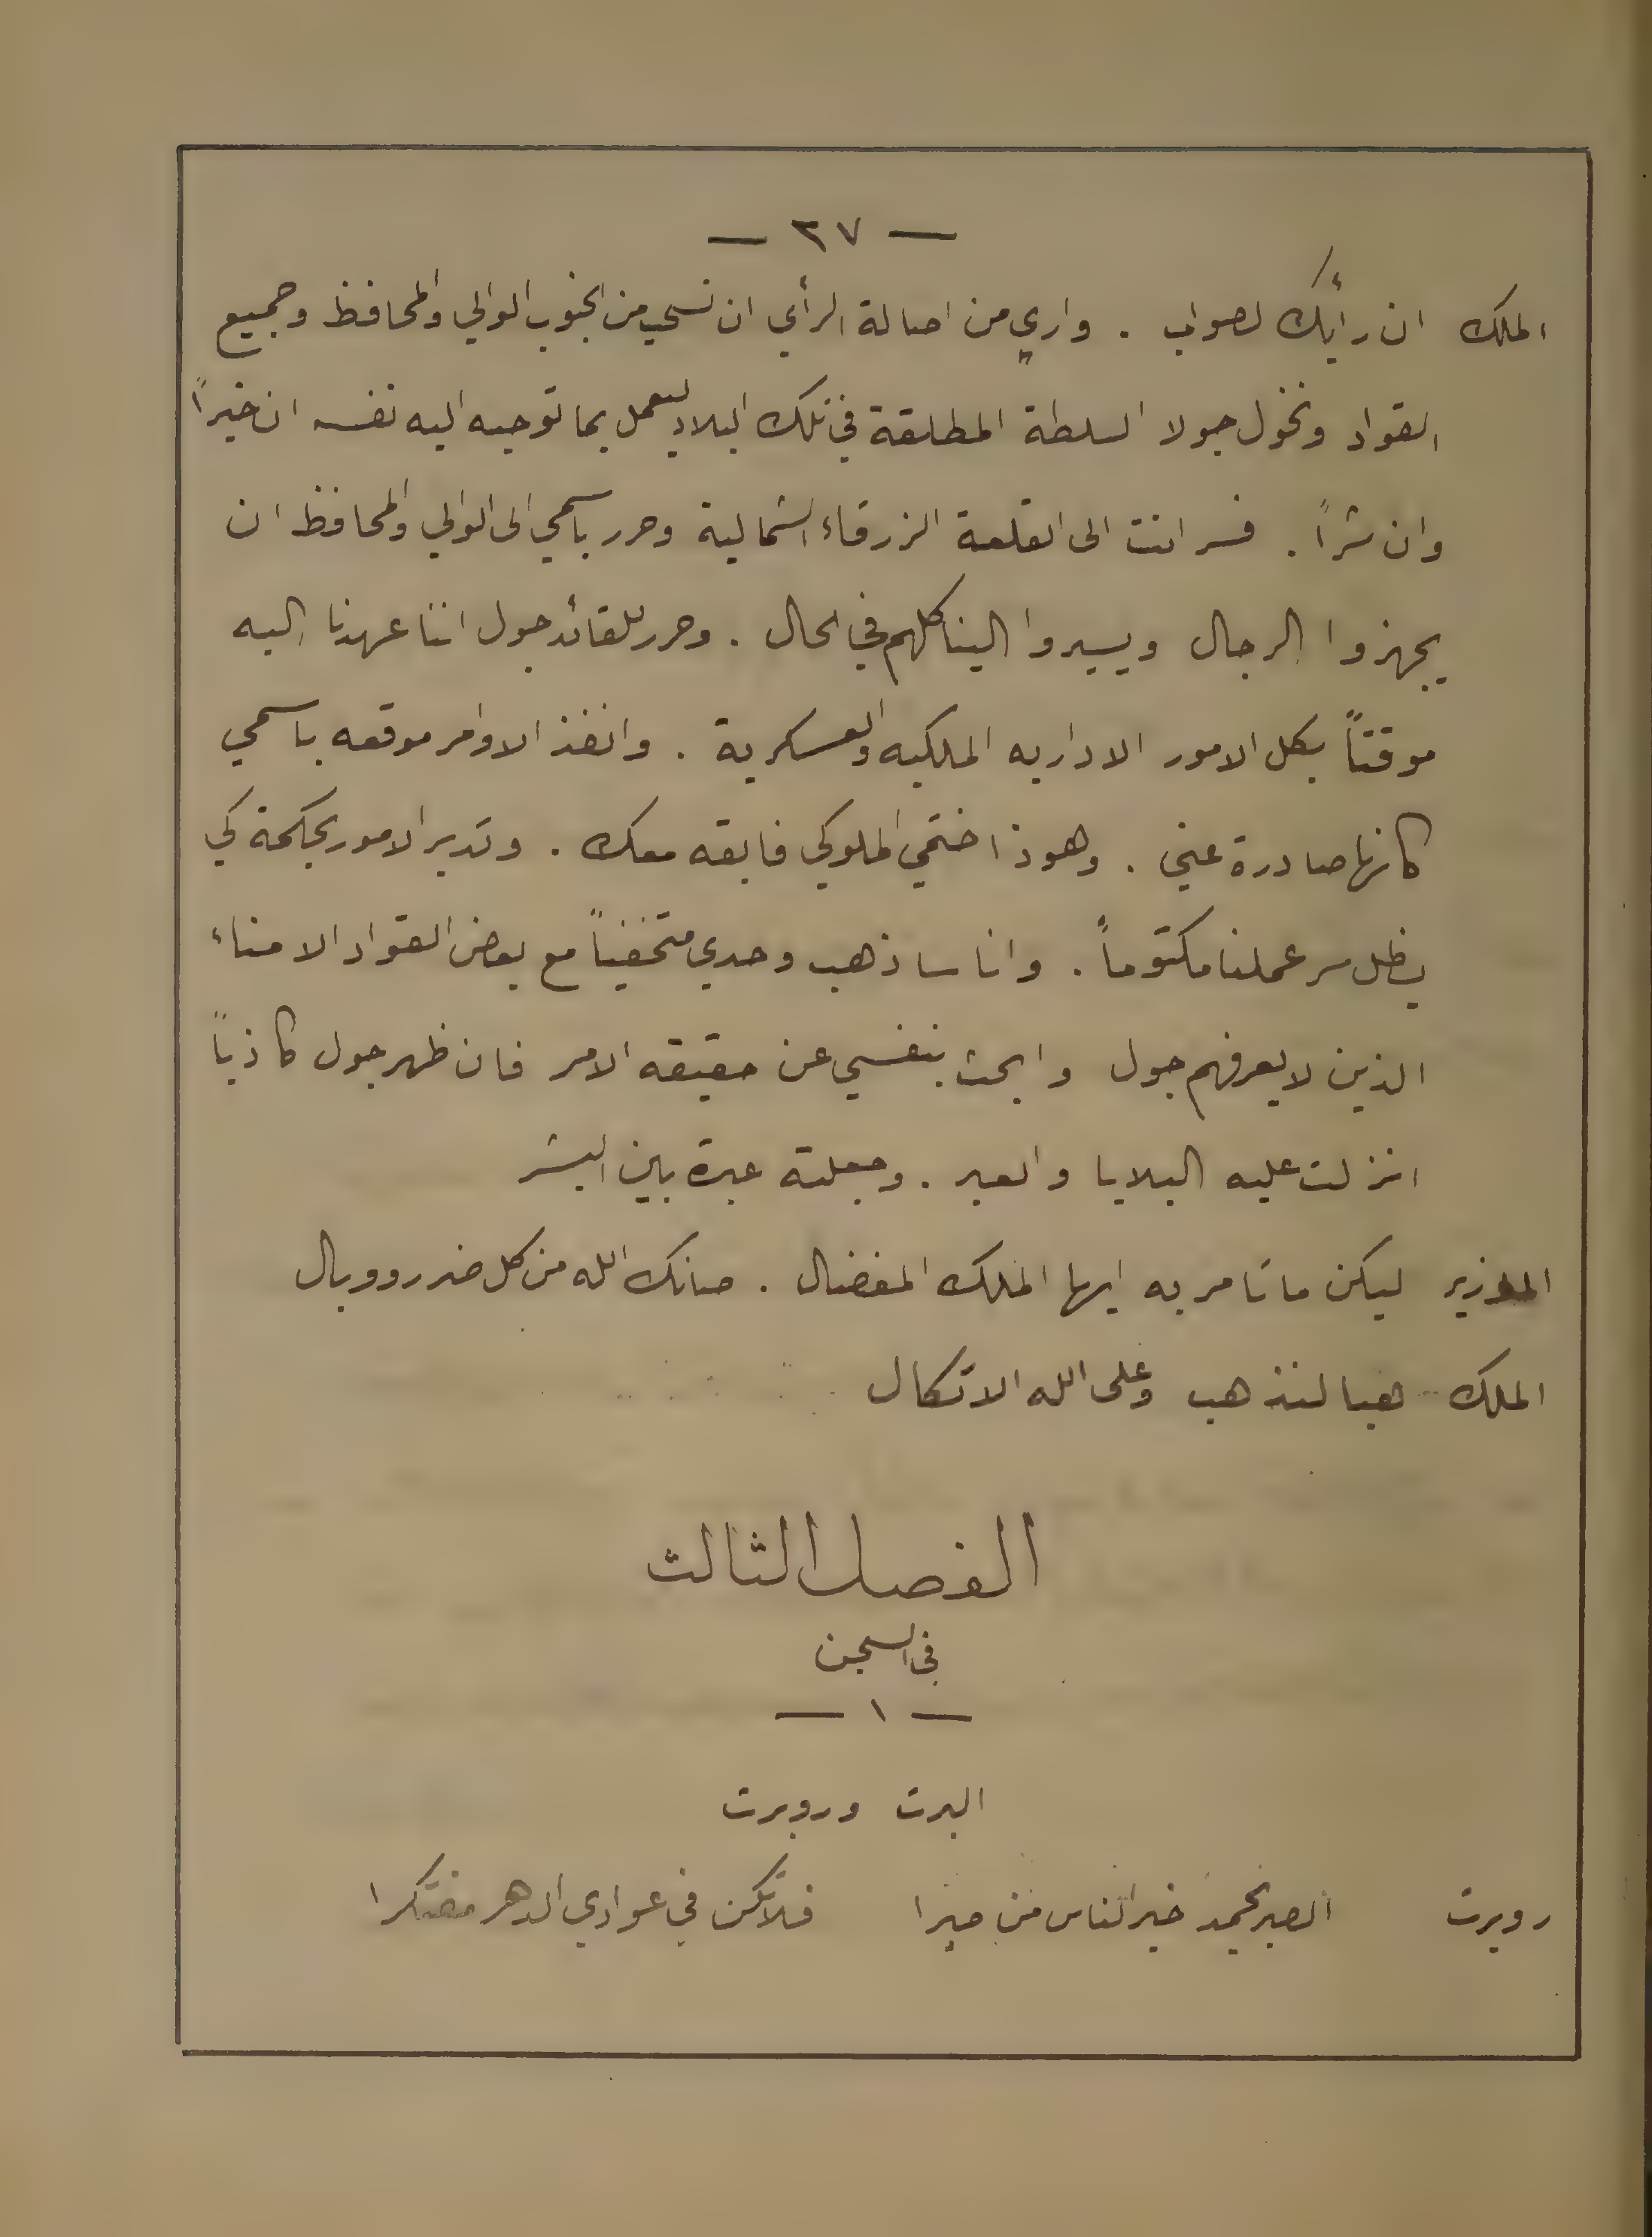 — ٢٧ —
الملك ان رأيك لصواب . واري من اصالة الرأي ان نسحب من الجنوب الوالي والمحافظ وجميع
القواد ونخول جولا السلطة المطلقة في تلك البلاد ليعمل بما توحيه اليه نفسه ان خيراً
وان شراً . فسر انت الى القلعة الزرقاء الشمالية وحرر باسمي الى الوالي والمحافظ ان
يجهزوا الرجال ويسيروا الينا كلهم في الحال . وحرر للقائد جول اننا عهدنا اليه
موقتاً بكل الامور الاداريه الملكيه والعسكرية . وانفذ الاوامر موقعه باسمي
كانها صادرة عني . وهوذا ختمي الملوكي فابقه معك . وتدبر الامور بحكمة كي
يظل سر عملنا مكتوماً . وانا ساذهب وحدي متخفياً مع بعض القواد الامناء
الذين لا يعرفهم جول وابحث بنفسي عن حقيقه الامر فان ظهر جول كاذباً
انزلت عليه البلايا والعبر . وجعلته عبرة بين البشر
الوزير ليكن ما تامر به ايها الملك المفضال . صانك الله من كل ضرر ووبال
الملك هيا لنذهب وعلى الله الاتكال
الفصل الثالث
في السجن
— ١ —
البرت وروبرت
روبرت الصبر يحمد خير الناس من صبرا فلا تكن في عوادي الدهر مفتكرا